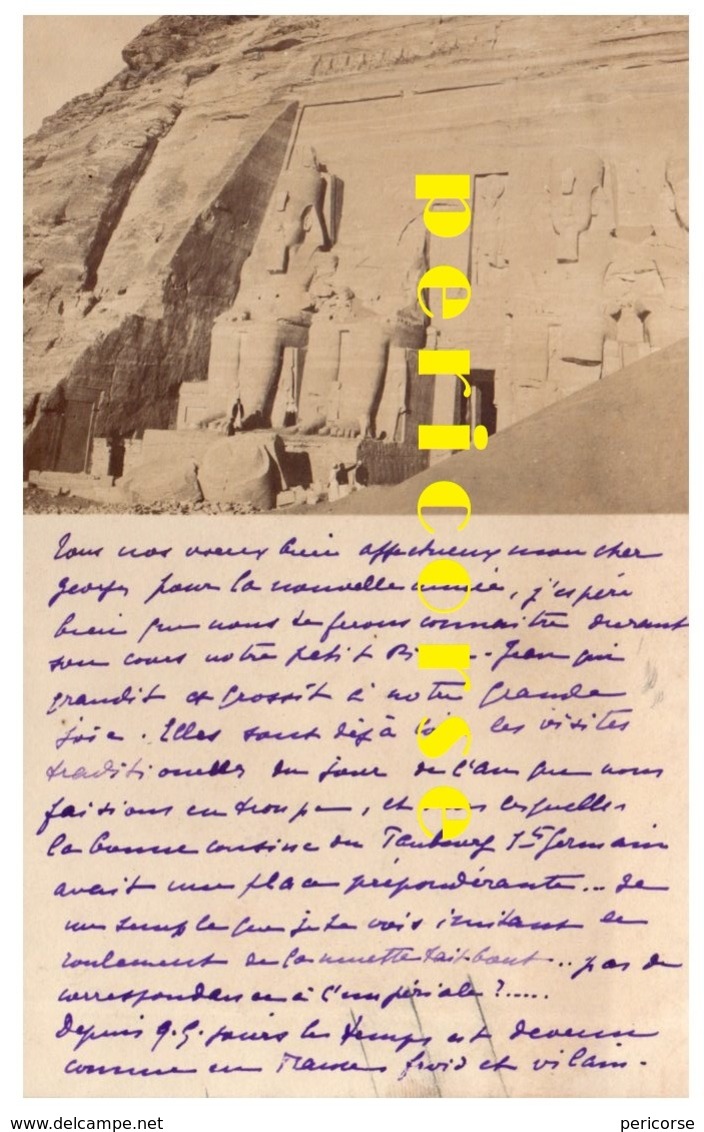 pericorse
Tous nos voeux bien affectueux mon cher
Georges pour la nouvelle année, j'espère
bien que nous te ferons connaitre durant
son cours notre petit Jean qui
grandit et grossit à notre grande
joie. Elles sont déjà les visites
traditionelles du jour de l'an que nous
faisions en troupe, et lesquelles
la bonne cousine du Faubourg St Germain
avait une place prépondérante... Il
me semble que je te vois imitant le
roulement de la .. pas de
correspondance à l'impériale ?.....
Depuis q.q. jours le temps est devenu
comme en France froid et vilain.
www.delcampe.net
pericorse